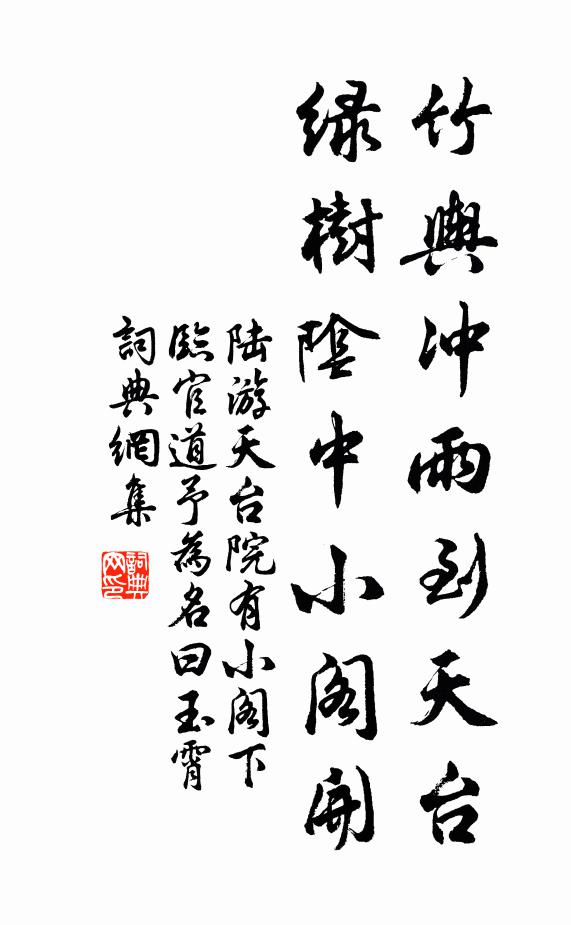 竹輿冲雨到天台
緑樹陰中小阁開
陆游天台院有小阁下
臨官道予為名曰玉霄
詞典網集
詞典
网印